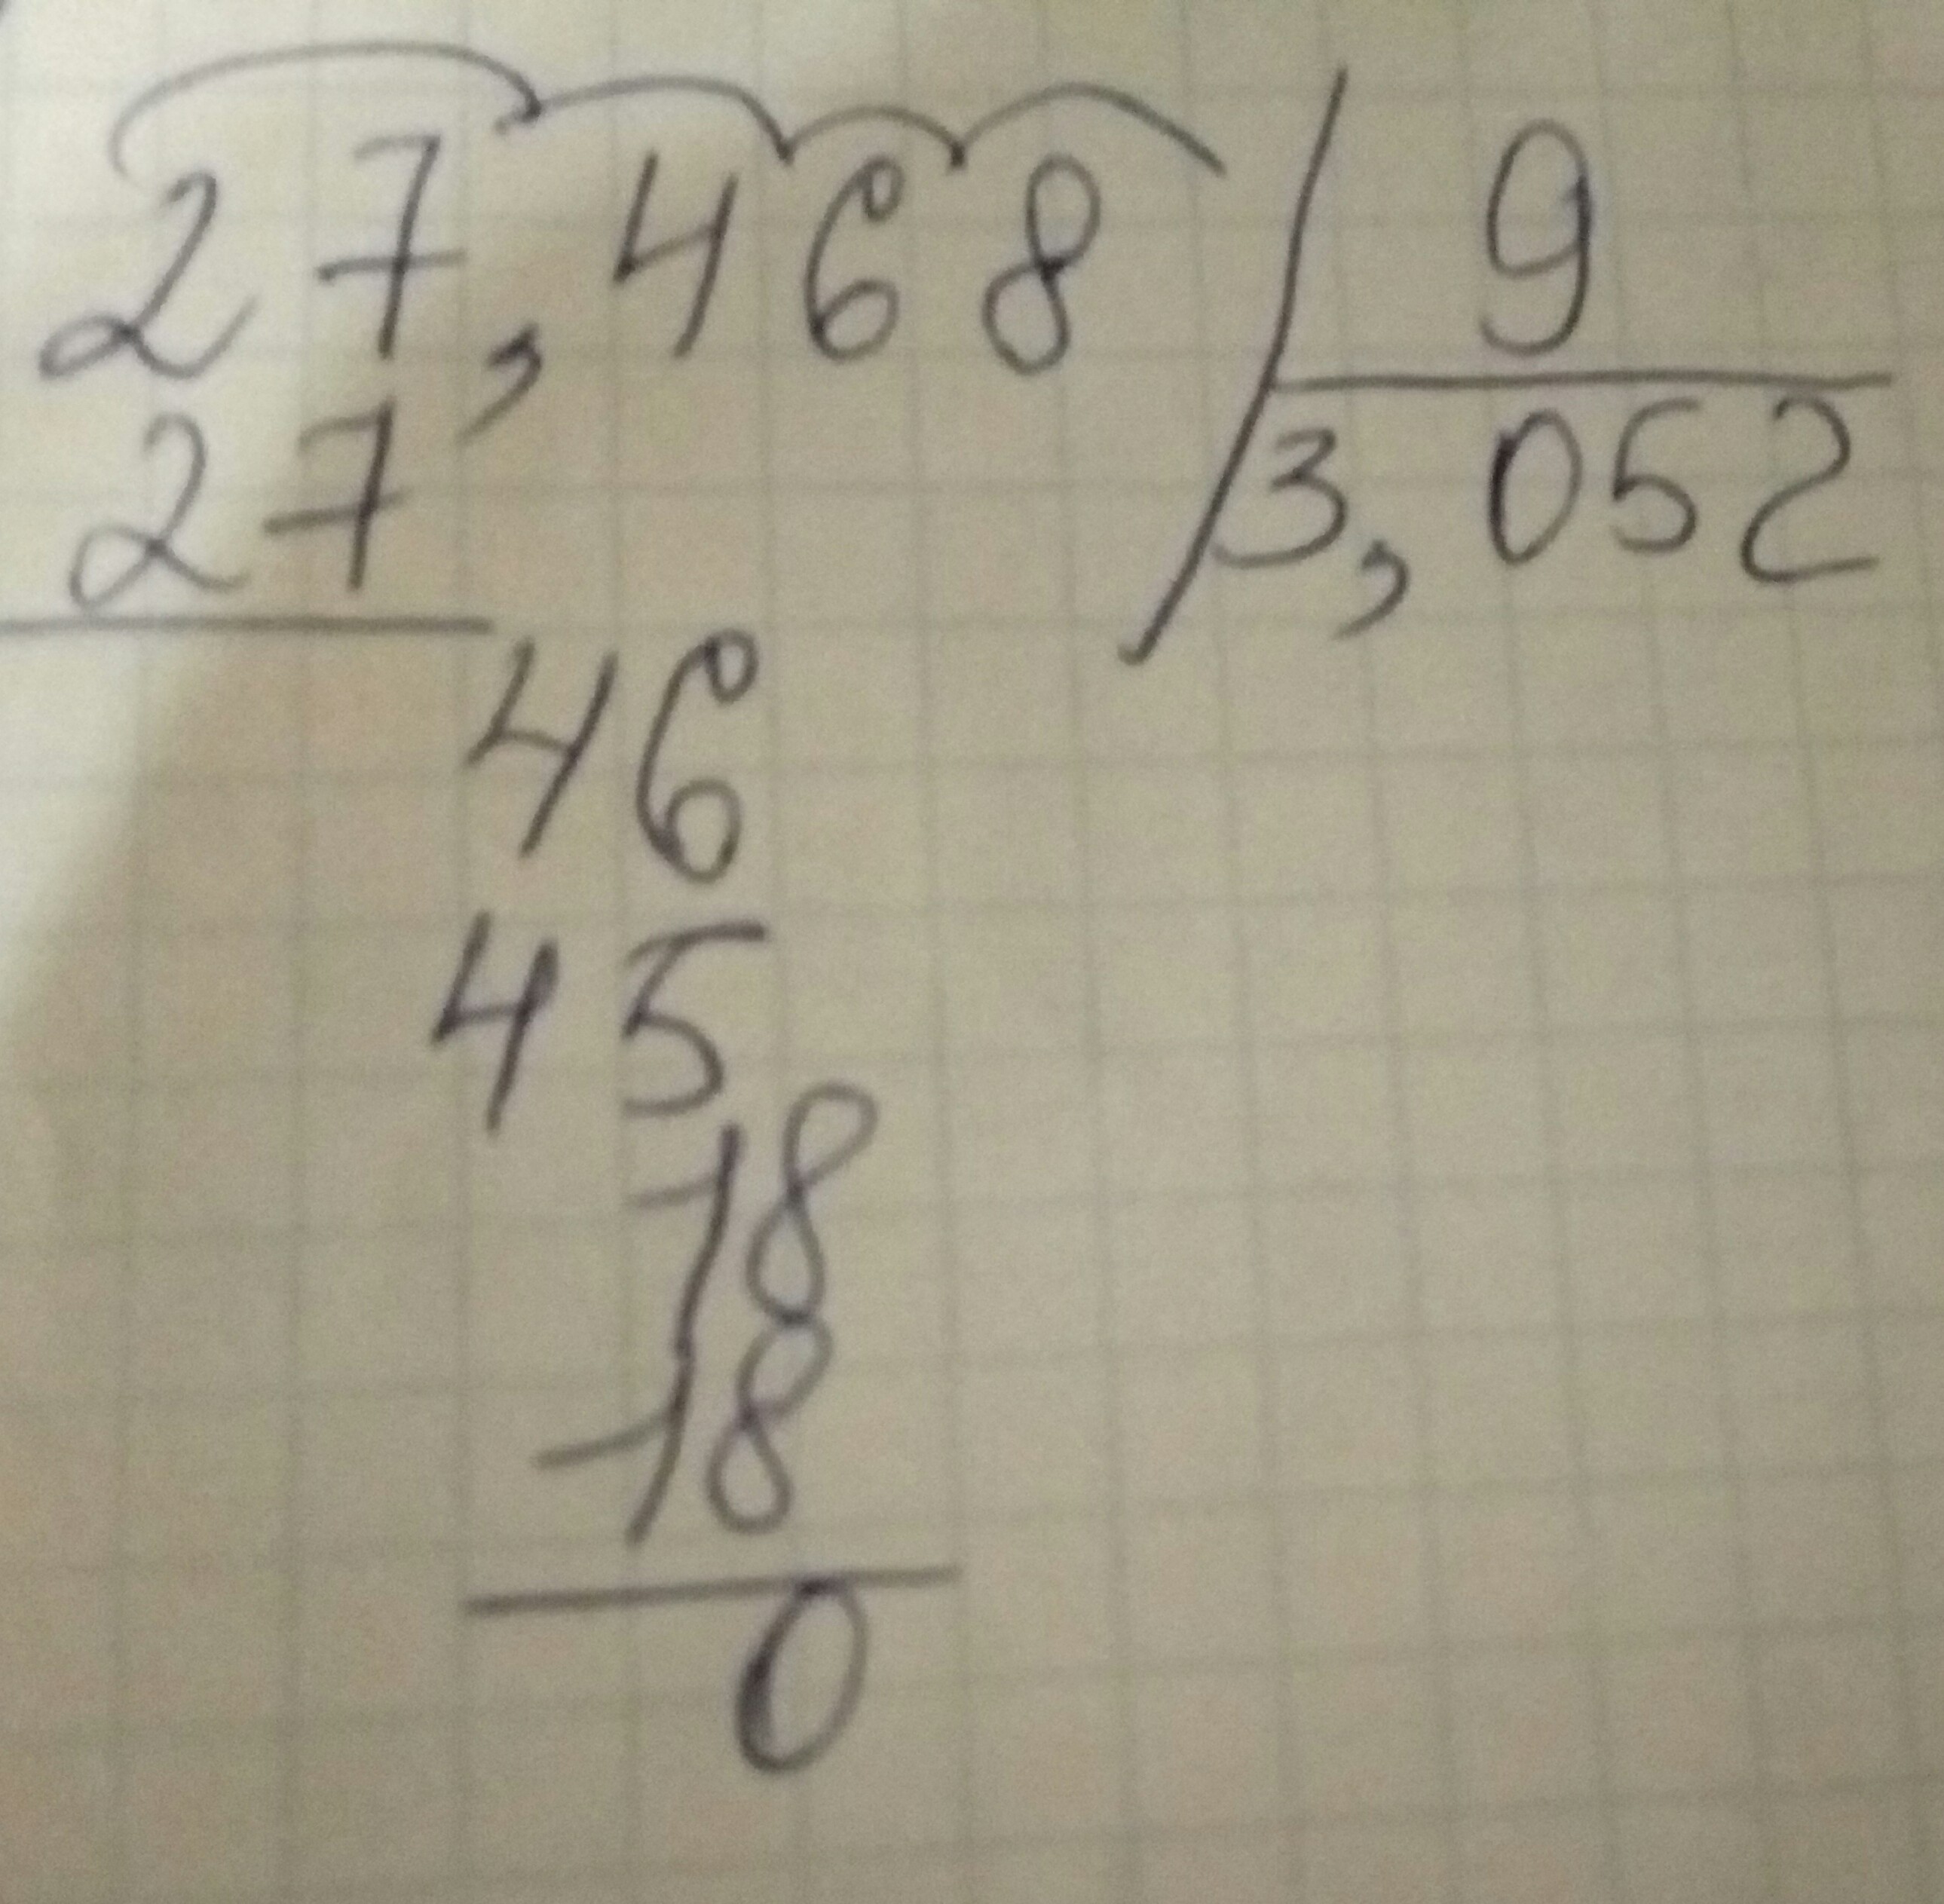 27,468 9
27 3,052
46
45
18
18
0